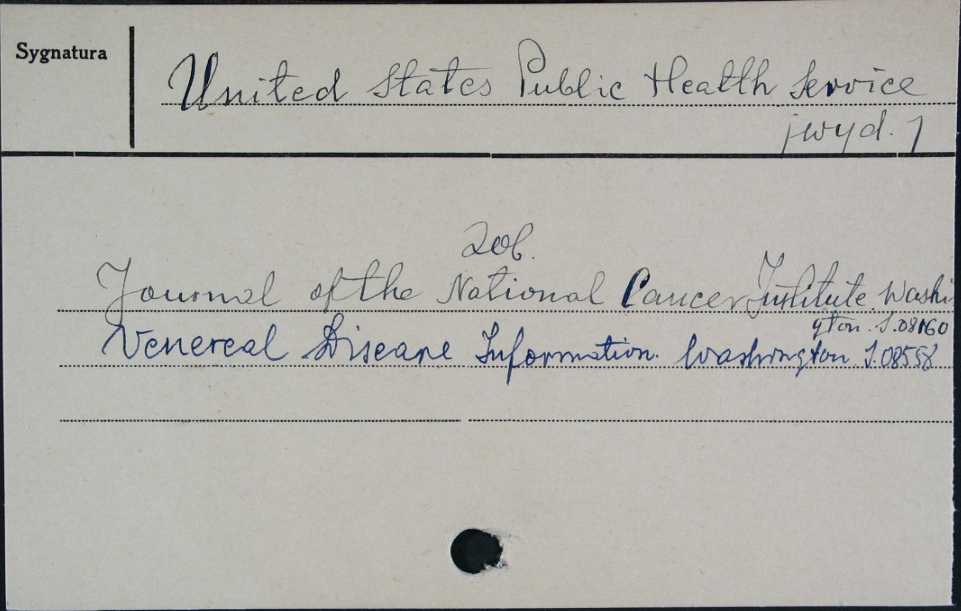 Sygnatura
United States Public Health Service
[wyd.]
Zob.
Journal of the National Cancer Institute. Washi
gton. S.08160
Venereal Disease Information. Washington S.08558